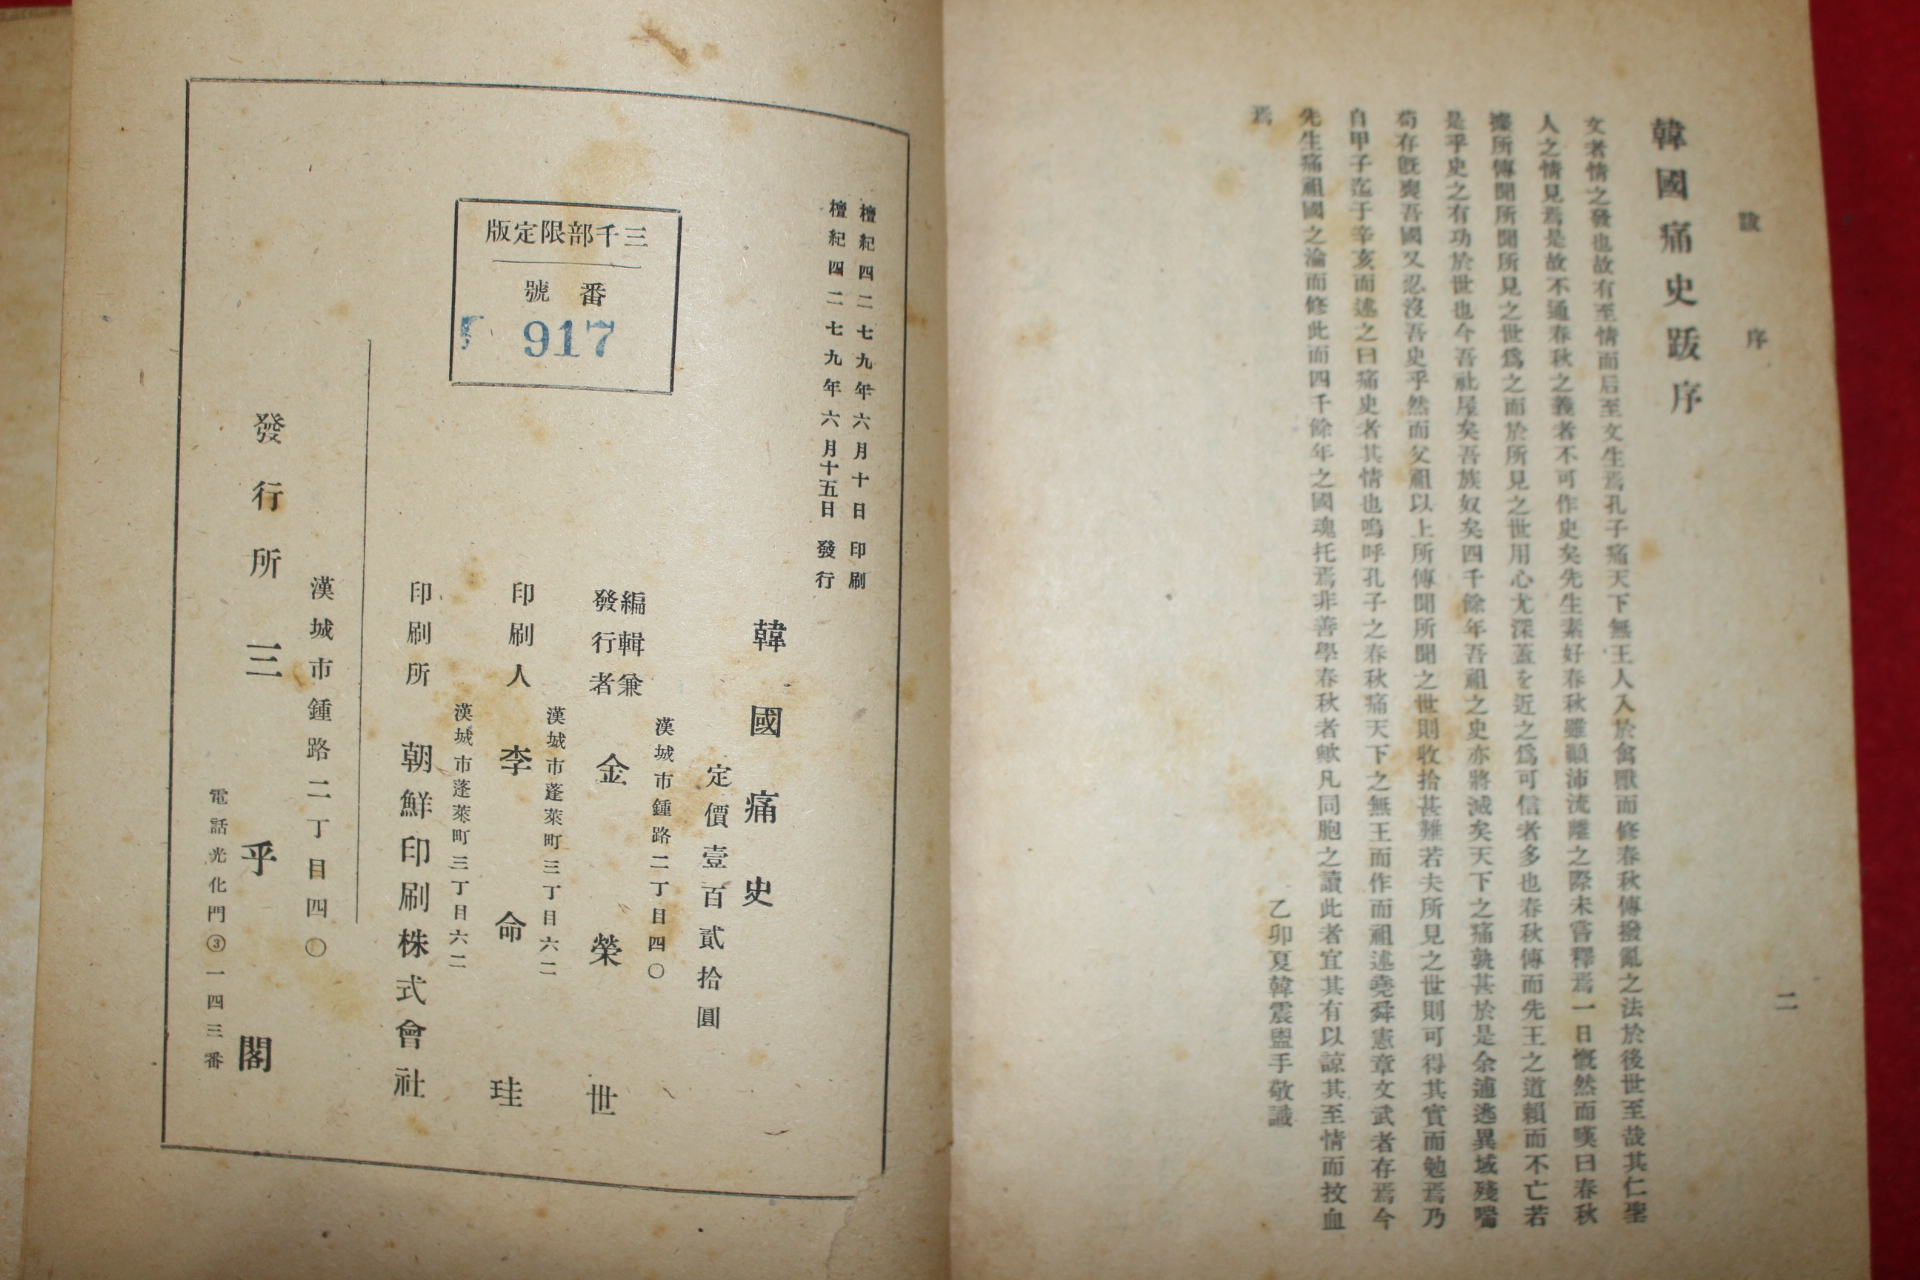 跋 序
二
韓國痛史跋序
文者情之發也故有至情而后至文生焉孔子痛天下無王人入於禽獸而修春秋傳撥亂之法於後世至哉其仁聖
人之情見焉是故不通春秋之義者不可作史矣先生素好春秋雖顚沛流離之際未嘗釋焉一日慨然而嘆曰春秋
據所傳聞所聞所見之世爲之而於所見之世用心尤深蓋を近之爲可信者多也春秋傳而先王之道賴而不亡若
是乎史之有功於世也今吾社屋矣吾族奴矣四千餘年吾祖之史亦將滅矣天下之痛孰甚於是余逋逃異域殘喘
苟存旣喪吾國又忍沒吾史乎然而父祖以上所傳聞所聞之世則收拾甚難若夫所見之世則可得其實而勉焉乃
自甲子迄于辛亥而述之曰痛史者其情也嗚呼孔子之春秋痛天下之無王而作而祖述堯舜憲章文武者存焉今
先生痛祖國之淪而修此而四千餘年之國魂托焉非善學春秋者歟凡同胞之讀此者宜其有以諒其至情而抆血
焉
乙卯夏韓震盥手敬識
檀紀四二七九年六月十日 印刷
檀紀四二七九年六月十五日 發行
三千部限定版
番號
917
韓國痛史
定價壹百貳拾圓
漢城市鍾路二丁目四〇
編輯兼
發行者 金榮世
漢城市蓬萊町三丁目六二
印刷人 李命珪
漢城市蓬萊町三丁目六二
印刷所 朝鮮印刷株式會社
漢城市鍾路二丁目四〇
發行所 三乎閣
電話光化門③一四三番